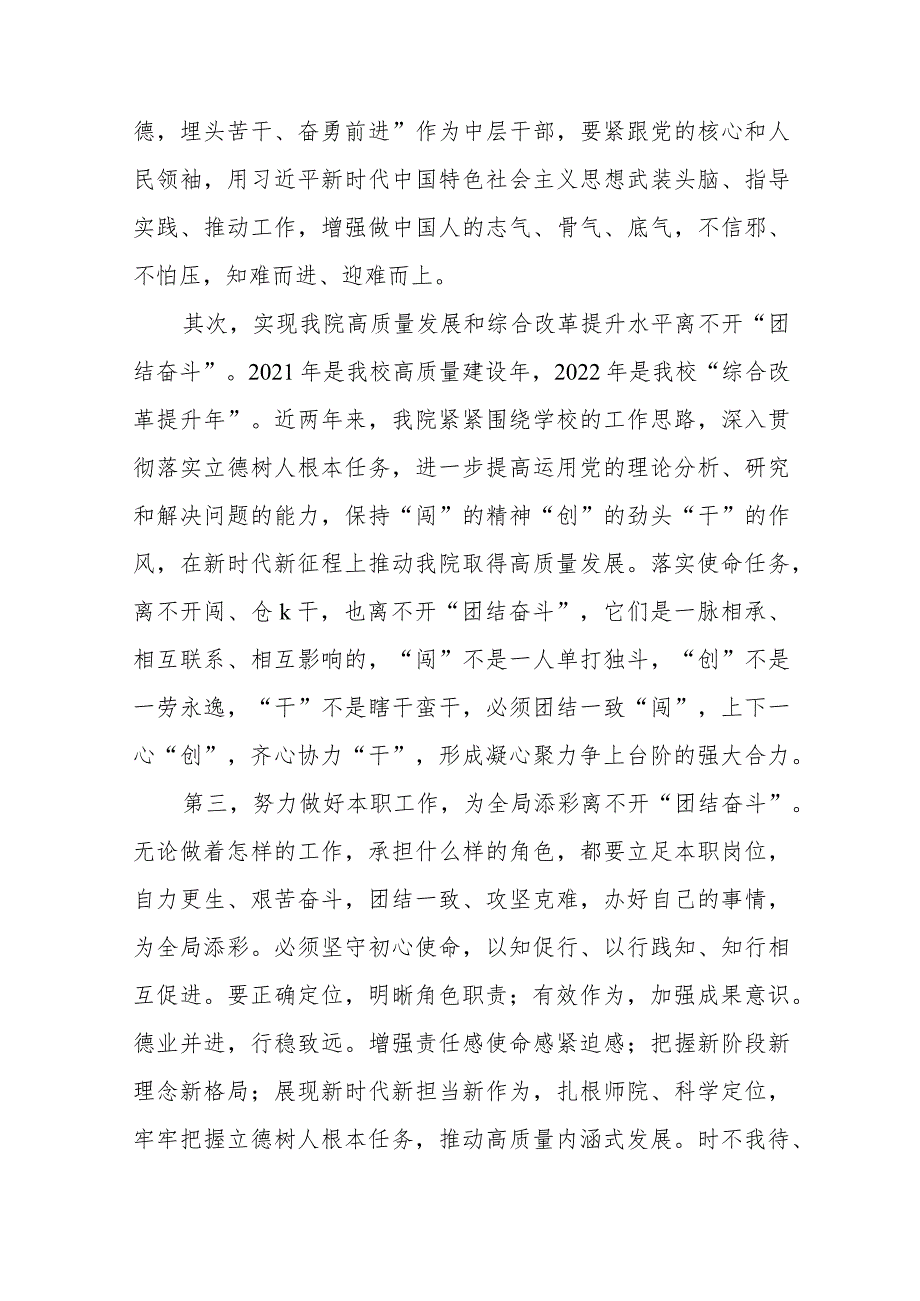 德，埋头苦干、奋勇前进”作为中层干部，要紧跟党的核心和人
民领袖，用习近平新时代中国特色社会主义思想武装头脑、指导
实践、推动工作，增强做中国人的志气、骨气、底气，不信邪、
不怕压，知难而进、迎难而上。
其次，实现我院高质量发展和综合改革提升水平离不开“团
结奋斗”。2021年是我校高质量建设年，2022年是我校“综合改
革提升年”。近两年来，我院紧紧围绕学校的工作思路，深入贯
彻落实立德树人根本任务，进一步提高运用党的理论分析、研究
和解决问题的能力，保持“闯”的精神“创”的劲头“干”的作
风，在新时代新征程上推动我院取得高质量发展。落实使命任务，
离不开闯、仓k干，也离不开“团结奋斗”，它们是一脉相承、
相互联系、相互影响的，“闯”不是一人单打独斗，“创”不是
一劳永逸，“干”不是瞎干蛮干，必须团结一致“闯”，上下一
心“创”，齐心协力“干”，形成凝心聚力争上台阶的强大合力。
第三，努力做好本职工作，为全局添彩离不开“团结奋斗”。
无论做着怎样的工作，承担什么样的角色，都要立足本职岗位，
自力更生、艰苦奋斗，团结一致、攻坚克难，办好自己的事情，
为全局添彩。必须坚守初心使命，以知促行、以行践知、知行相
互促进。要正确定位，明晰角色职责；有效作为，加强成果意识。
德业并进，行稳致远。增强责任感使命感紧迫感；把握新阶段新
理念新格局；展现新时代新担当新作为，扎根师院、科学定位，
牢牢把握立德树人根本任务，推动高质量内涵式发展。时不我待、